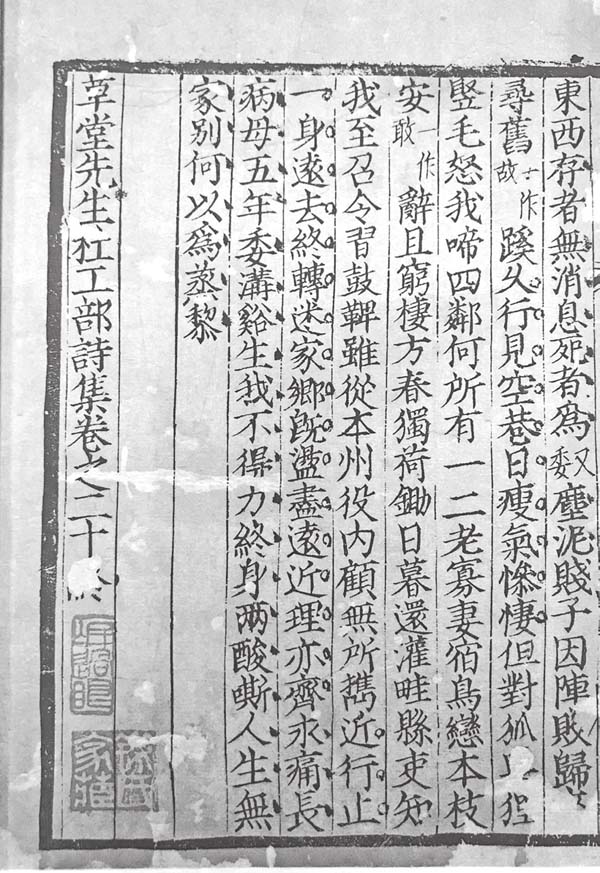 東西存者無消息死者爲又委塵泥賤子因陣敗歸
尋舊一作故蹊久行見空巷日瘦氣慘悽但對狐狸
豎毛怒我啼四鄰何所有一二老寡妻宿鳥戀本枝
安一作敢辭且窮棲方春獨荷鋤日暮還灌畦縣吏知
我至召令習鼓鞞雖從本州役内顧無所攜近行止
一身遠去終轉迷家鄉旣盪盡遠近理亦齊永痛長
病母五年委溝谿生我不得力終身兩酸嘶人生無
家別何以爲蒸黎
草堂先生杜工部詩集卷之二十終